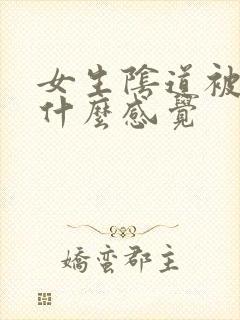 女生陰道被
什麼感覺
嬌蠻郡主